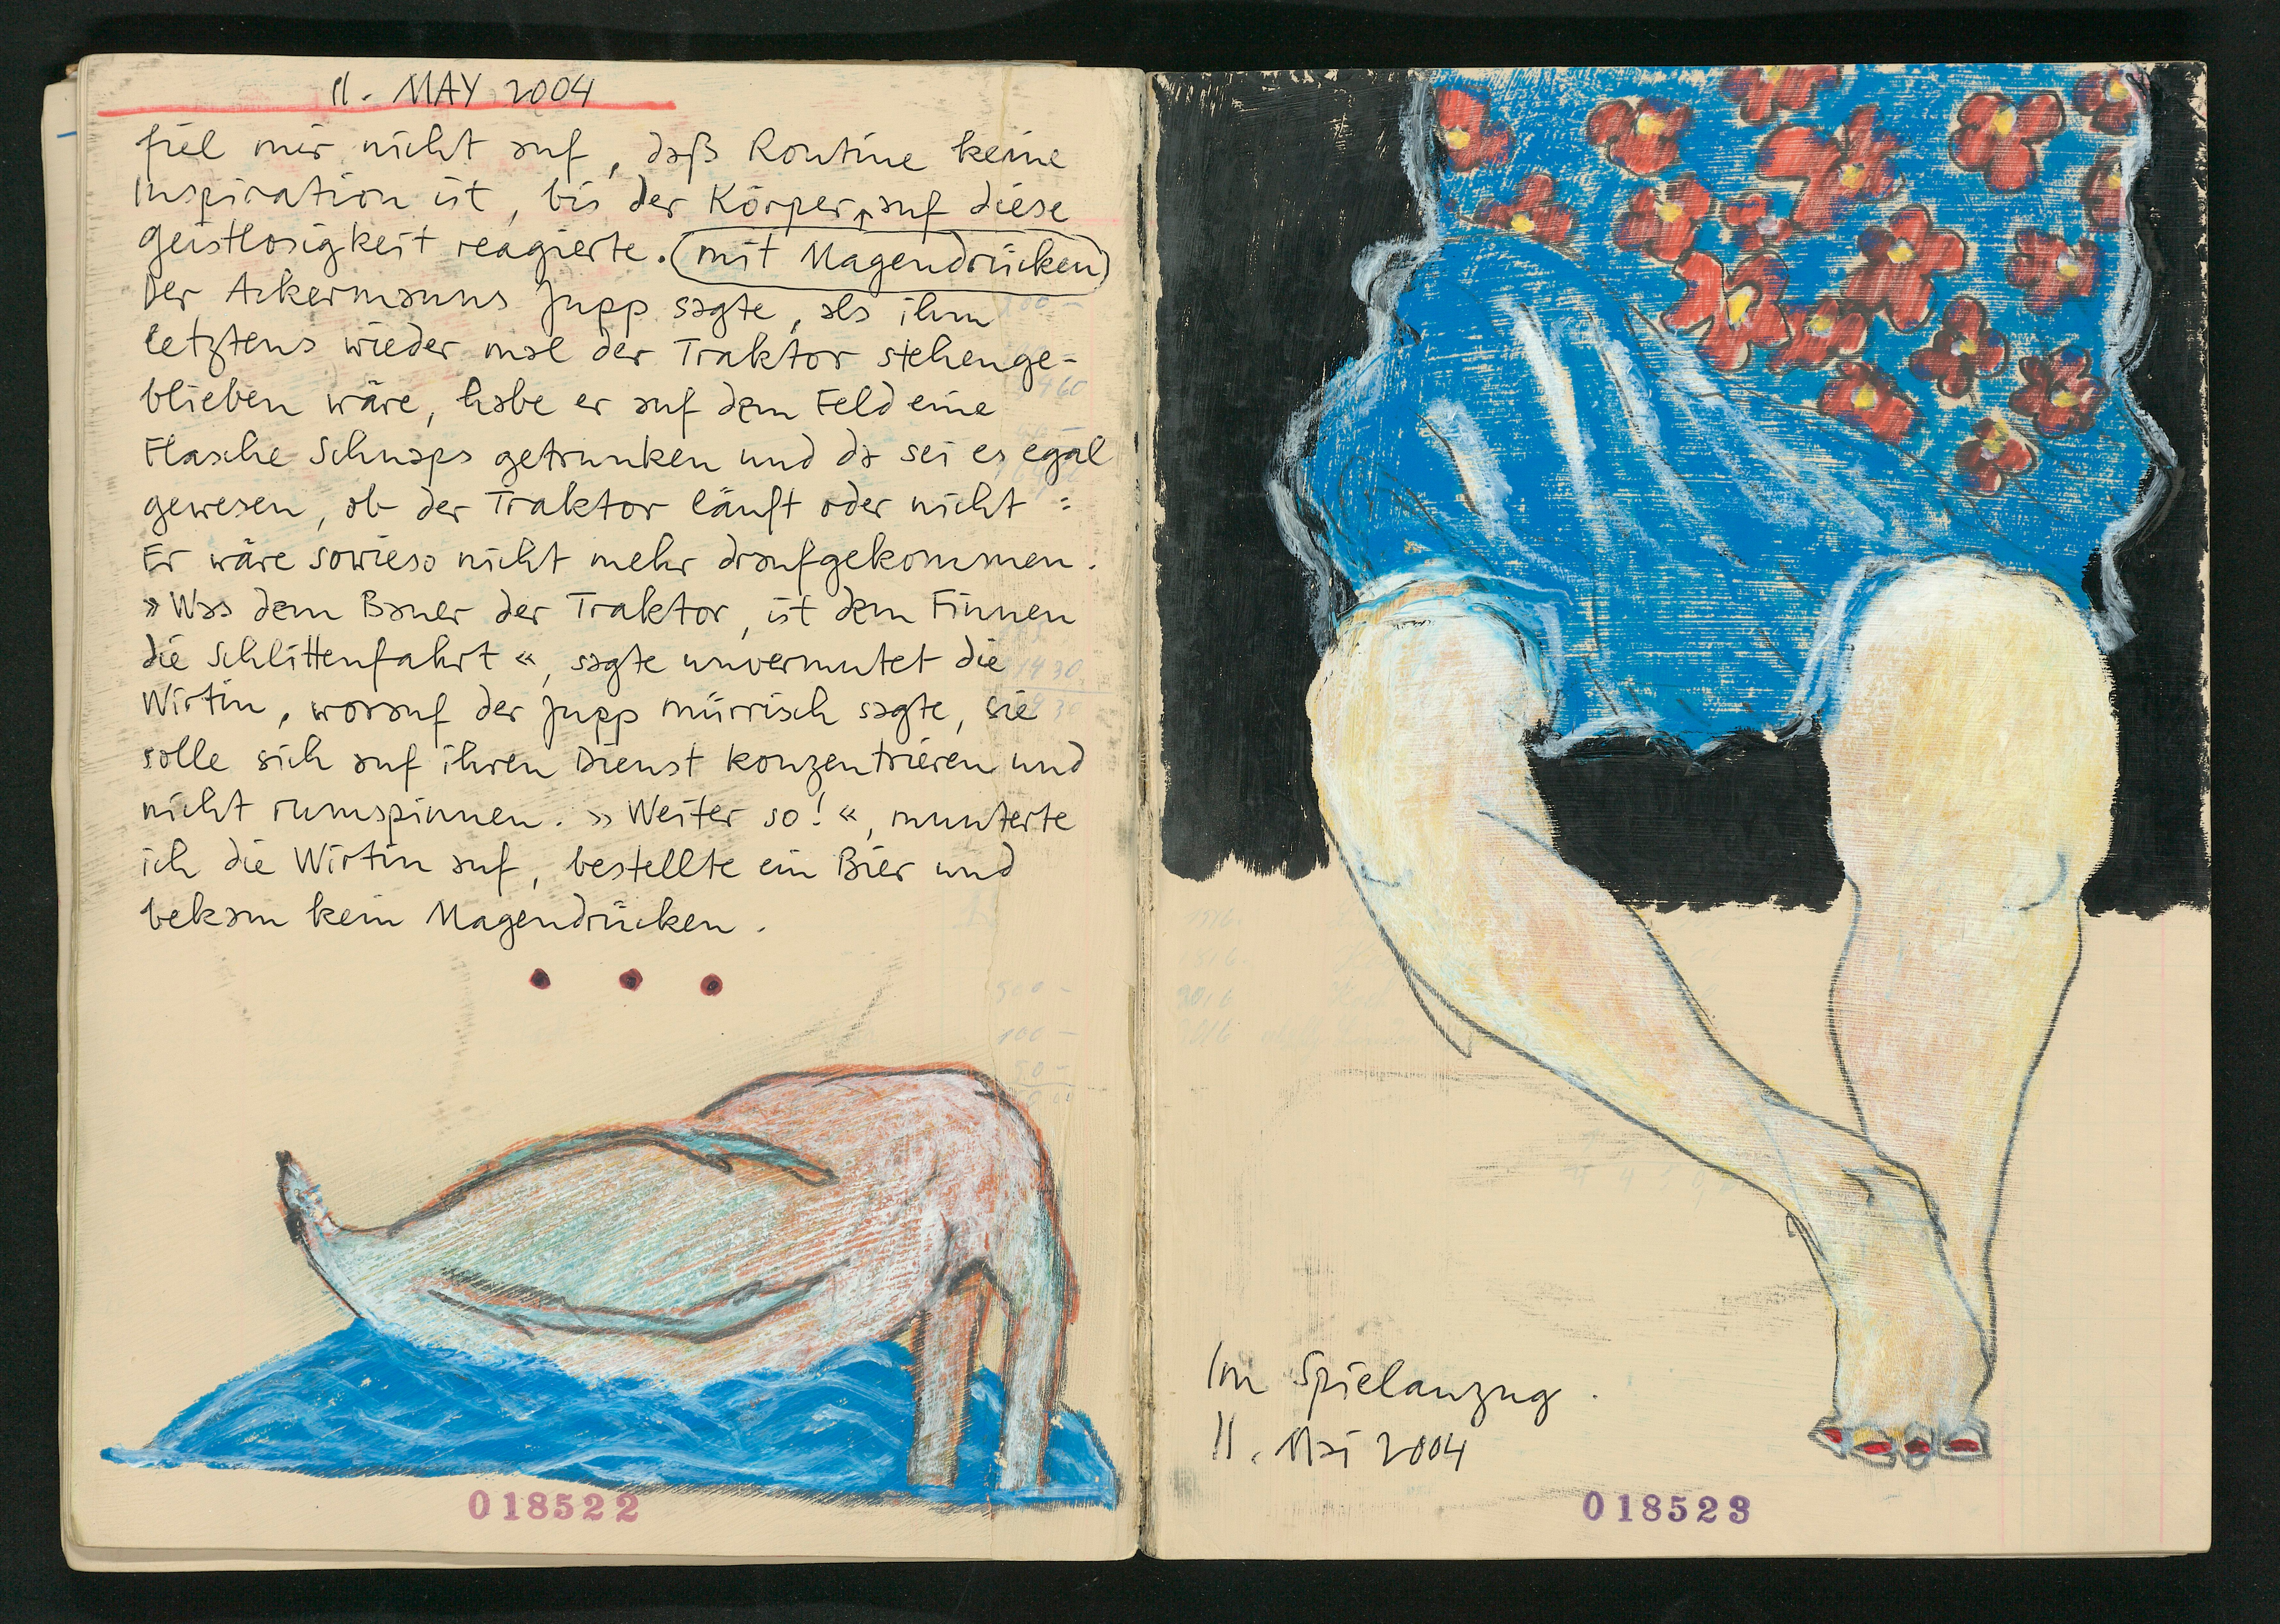 11. MAY 2004
fiel mir nicht auf, daß Routine keine
Inspiration ist, bis der Körper auf diese
Geistlosigkeit reagierte. (mit Magendrücken)
Der Ackermanns Jupp sagte, als ihm
letztens wieder mal der Traktor stehenge-
blieben wäre, habe er auf dem Feld eine
Flasche Schnaps getrunken und da sei es egal
gewesen, ob der Traktor läuft oder nicht :
Er wäre sowieso nicht mehr draufgekommen.
»Was dem Bauer der Traktor, ist dem Finnen
die Schlittenfahrt«, sagte unvermutet die
Wirtin, worauf der Jupp mürrisch sagte, sie
solle sich auf ihren Dienst konzentrieren und
nicht rumspinnen. »Weiter so!«, munterte
ich die Wirtin auf, bestellte ein Bier und
bekam kein Magendrücken.
018522
Im Spielanzug.
11. Mai 2004
018523